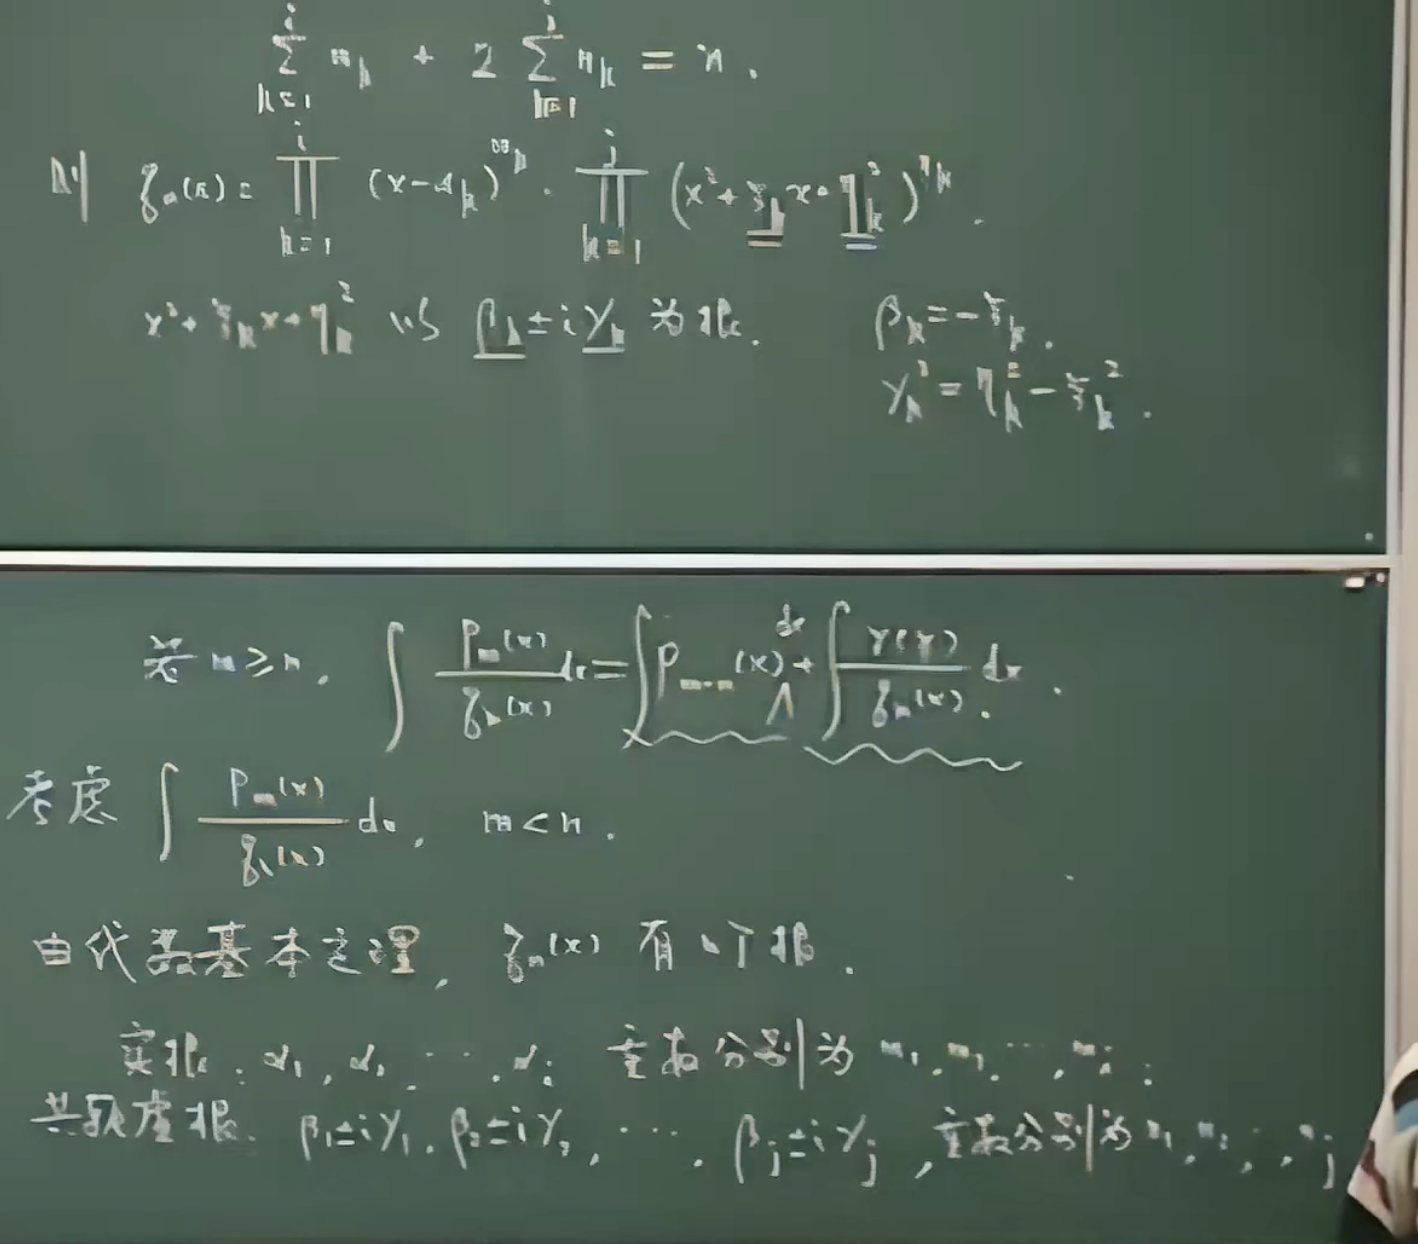 $\sum_{k=1}^{i} m_k + 2 \sum_{k=1}^{j} n_k = n.$
则 $q_n(x) = \prod_{k=1}^{i} (x-\alpha_k)^{m_k} \cdot \prod_{k=1}^{j} (x^2 + \xi_k x + \eta_k^2)^{n_k}.$
$x^2 + \xi_k x + \eta_k^2$ 以 $\beta_k \pm i\gamma_k$ 为根. $\beta_k = -\xi_k.$
$\gamma_k^2 = \eta_k^2 - \xi_k^2.$
若 $m \geq n.$ $\int \frac{p_m(x)}{q_n(x)} dx = \int p_{m-n}(x) dx + \int \frac{r(x)}{q_n(x)} dx.$
考虑 $\int \frac{p_m(x)}{q_n(x)} dx, \quad m < n.$
由代数基本定理, $q_n(x)$ 有 n个根.
实根: $\alpha_1, \alpha_2, \cdots, \alpha_i$ 重数分别为 $m_1, m_2, \cdots, m_i;$
共轭虚根: $\beta_1 \pm i\gamma_1, \beta_2 \pm i\gamma_2, \cdots, \beta_j \pm i\gamma_j,$ 重数分别为 $n_1, n_2, \cdots, n_j$